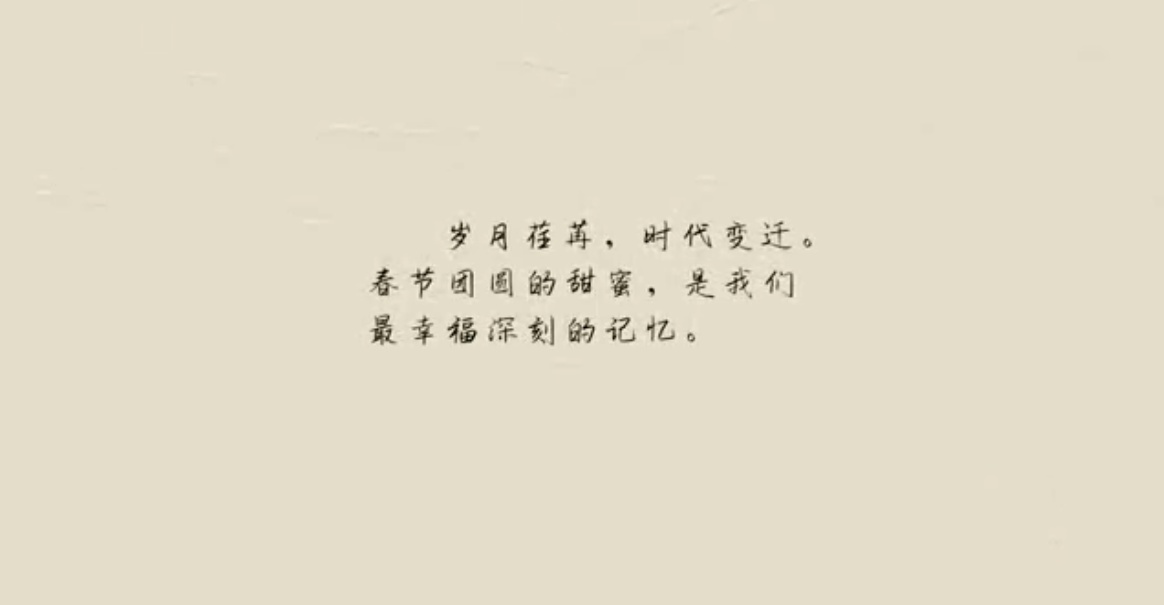 岁月荏苒，时代变迁。
春节团圆的甜蜜，是我们
最幸福深刻的记忆。